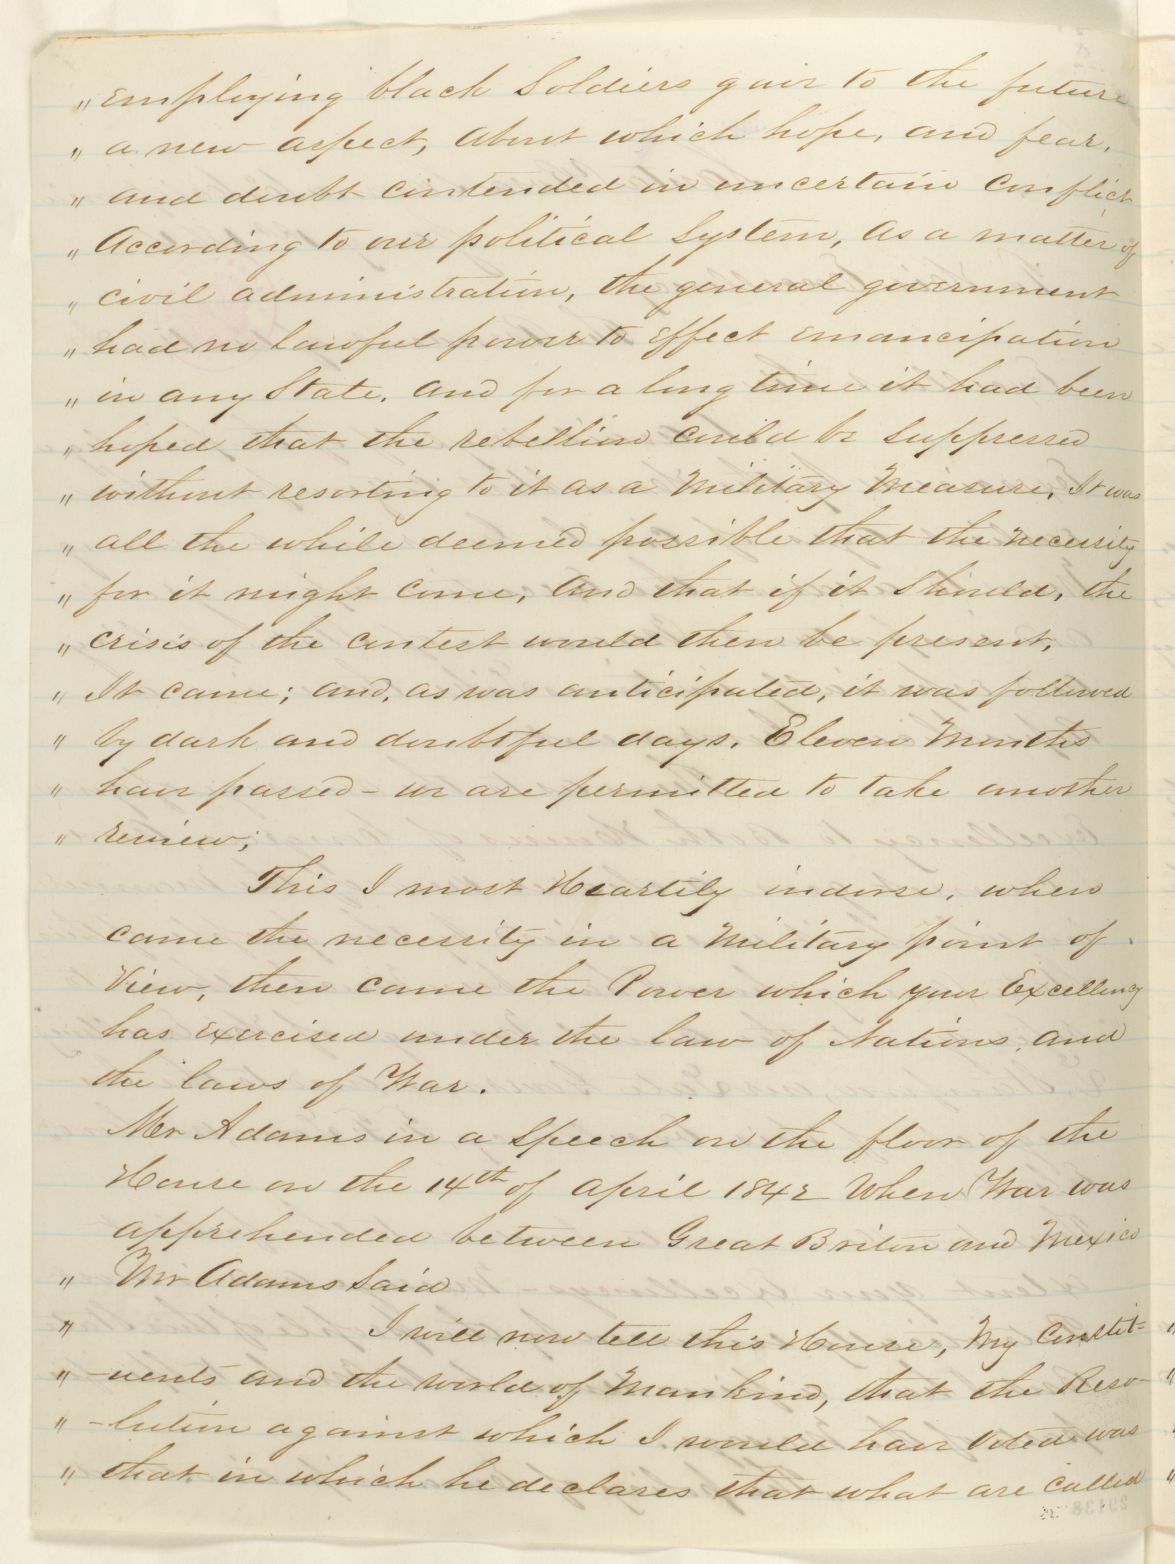 " employing black Soldiers gave to the future
" a new aspect, about which hope, and fear,
" and doubt contended in uncertain conflict
" According to our political System, as a matter of
" civil administration, the general government
" had no lawful power to effect emancipation
" in any State, and for a long time it had been
" hoped that the rebellion could be suppressed
" without resorting to it as a Military Measure, It was
" all the while deemed possible that the necessity
" for it might come, and that if it Should, the
" crisis of the contest would then be present.
" It came; and, as was anticipated, it was followed
" by dark and doubtful days. Eleven Months
" have passed - we are permitted to take another
" review;
This I most Heartily indorse, when
came the necessity in a Military point of
View, then came the Power which your Excellency
has exercised under the law of Nations, and
the laws of War.
Mr Adams in a Speech on the floor of the
House on the 14th of april 1842 When War was
apprehended between Great Briton and Mexico
" Mr Adams Said
" I will now tell this House, My Constit=
" -uents and the world of Mankind, that the Reso-
" -lution against which I would have Voted was
" that in which he declares that what are called